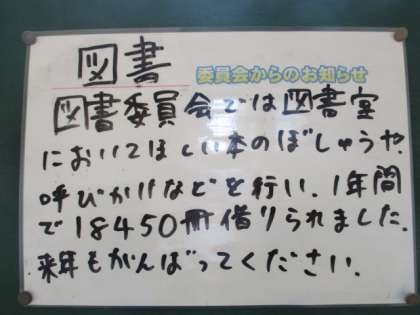 図書
委員会からのお知らせ
図書委員会では図書室
においてほしい本のぼしゅうや、
呼びかけなどを行い、1年間
で18450冊借りられました。
来年もがんばってください。